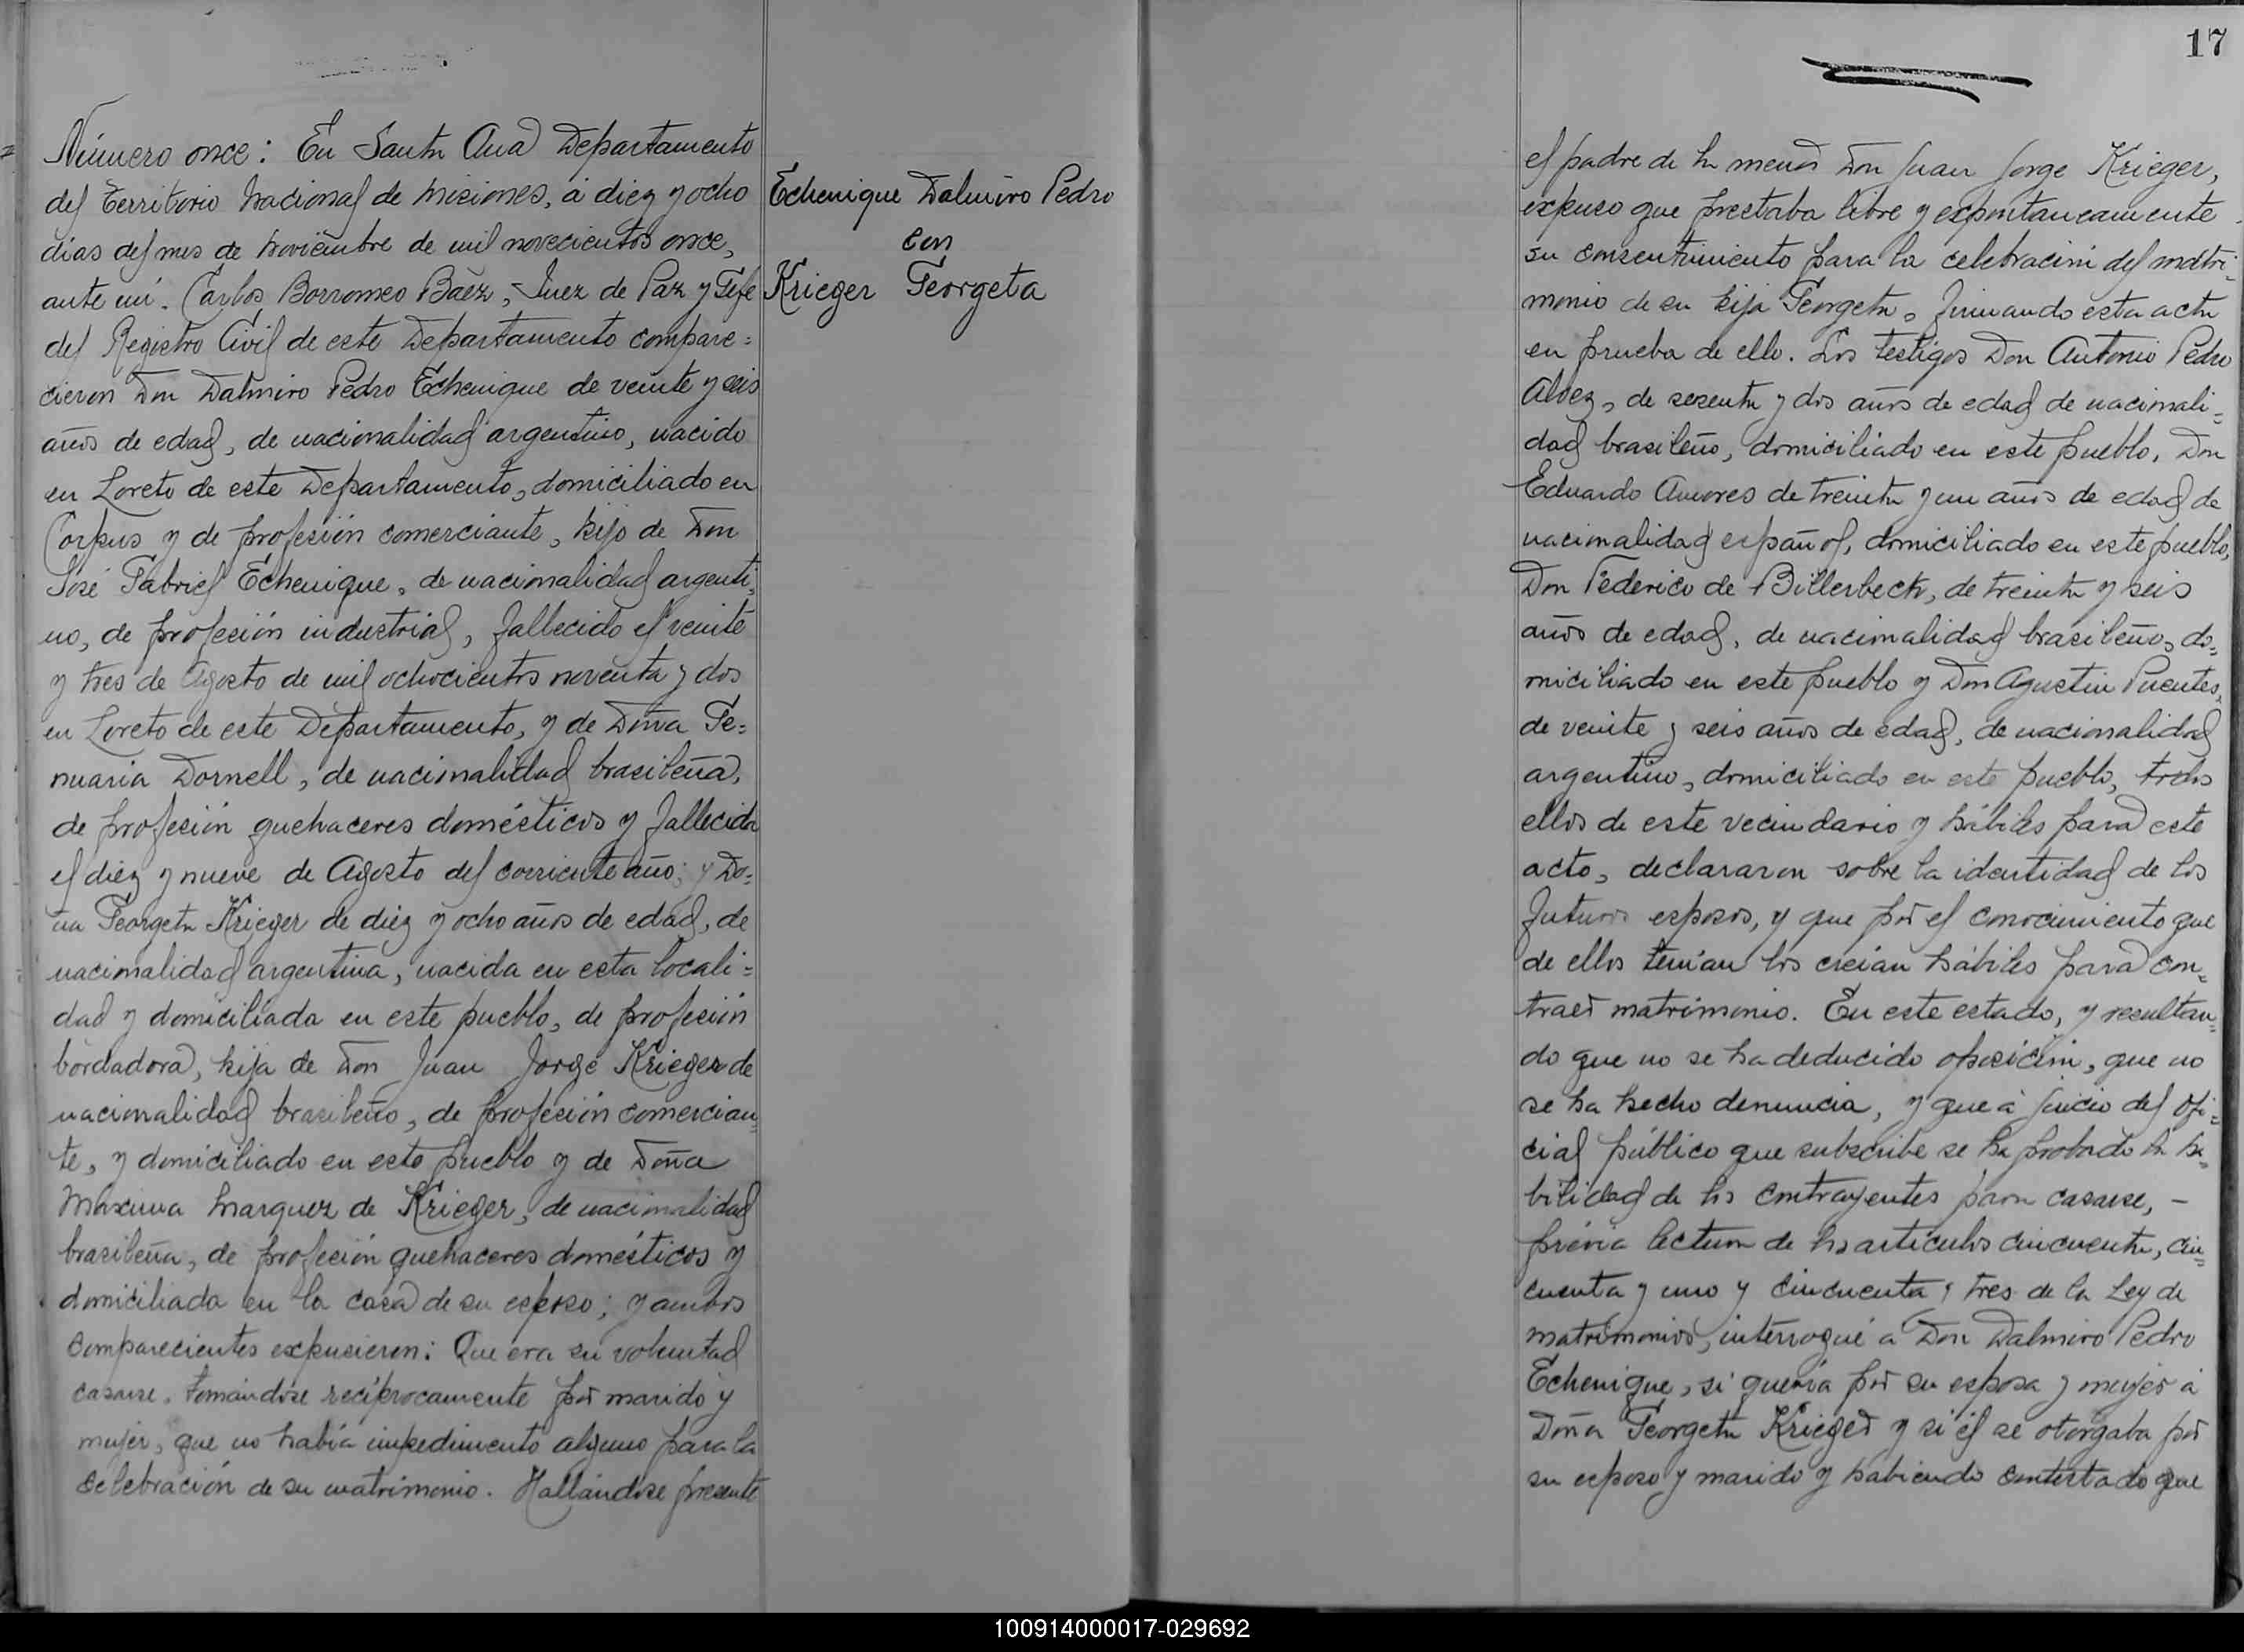 Número once: En Santa Ana Departamento
del Territorio Nacional de Misiones, á diez y ocho
dias del mes de Noviembre de mil novecientos once,
ante mi. Carlos Borromeo Báez, Juez de Paz y Gefe
del Registro Civil de este Departamento compare=
cieron Don Dalmiro Pedro Echenique de veinte y seis
años de edad, de nacionalidad argentino, nacido
en Loreto de este Departamento, domiciliado en
Corpus y de profesión comerciante, hijo de Don
José Gabriel Echenique, de nacionalidad argenti=
no, de profesión industrial, fallecido el veinte
y tres de Agosto de mil ochocientos noventa y dos
en Loreto de este Departamento, y de Doña Ge=
nuaria Dornell, de nacionalidad brasileña,
de profesión quehaceres domésticos y fallecida
el diez y nueve de Agosto del corriente año; y Do=
ña Georgeta Krieger de diez y ocho años de edad, de
nacionalidad argentina, nacida en esta locali=
dad y domiciliada en este pueblo, de profesión
bordadora, hija de Don Juan Jorge Krieger de
nacionalidad brasileño, de profesión comercian=
te, y domiciliado en este pueblo y de Doña
Máxima Marquez de Krieger, de nacionalidad
brasileña, de profesión quehaceres domésticos y
domiciliada en la casa de su esposo; y ambos
comparecientes expusieron: Que era su voluntad
casarse, tomándose recíprocamente por marido y
mujer, que no había impedimento alguno para la
celebración de su matrimonio. Hallándose presente
Echenique Dalmiro Pedro
con
Krieger Georgeta
17
el padre de la menor Don Juan Jorge Krieger,
expuso que prestaba libre y expontaneamente
su consentimiento para la celebración del matri=
monio de su hija Georgeta, firmando esta acta
en prueba de ello. Los testigos Don Antonio Pedro
Alvez, de sesenta y dos años de edad de nacionali=
dad brasileño, domiciliado en este pueblo, Don
Eduardo Amores de treinta y un años de edad de
nacionalidad español, domiciliado en este pueblo,
Don Federico de Billerbeck, de treinta y seis
años de edad, de nacionalidad brasileño, do=
miciliado en este pueblo y Don Agustin Puentes,
de veinte y seis años de edad, de nacionalidad
argentino, domiciliado en este pueblo, todos
ellos de este vecindario y hábiles para este
acto, declararon sobre la identidad de los
futuros esposos, y que por el conocimiento que
de ellos tenían los creían hábiles para con=
traer matrimonio. En este estado, y resultan=
do que no se ha deducido oposición, que no
se ha hecho denuncia, y que á juicio del ofi=
cial público que subscribe se ha probado la ha=
bilidad de los contrayentes para casarse, -
prévia lectura de los artículos cincuenta, cin=
cuenta y uno y cincuenta y tres de la Ley de
matrimonios, interrogué a Don Dalmiro Pedro
Echenique, si quería por su esposa y mujer á
Doña Georgeta Krieger y si él se otorgaba por
su esposo y marido y habiendo contestado que
100914000017-029692